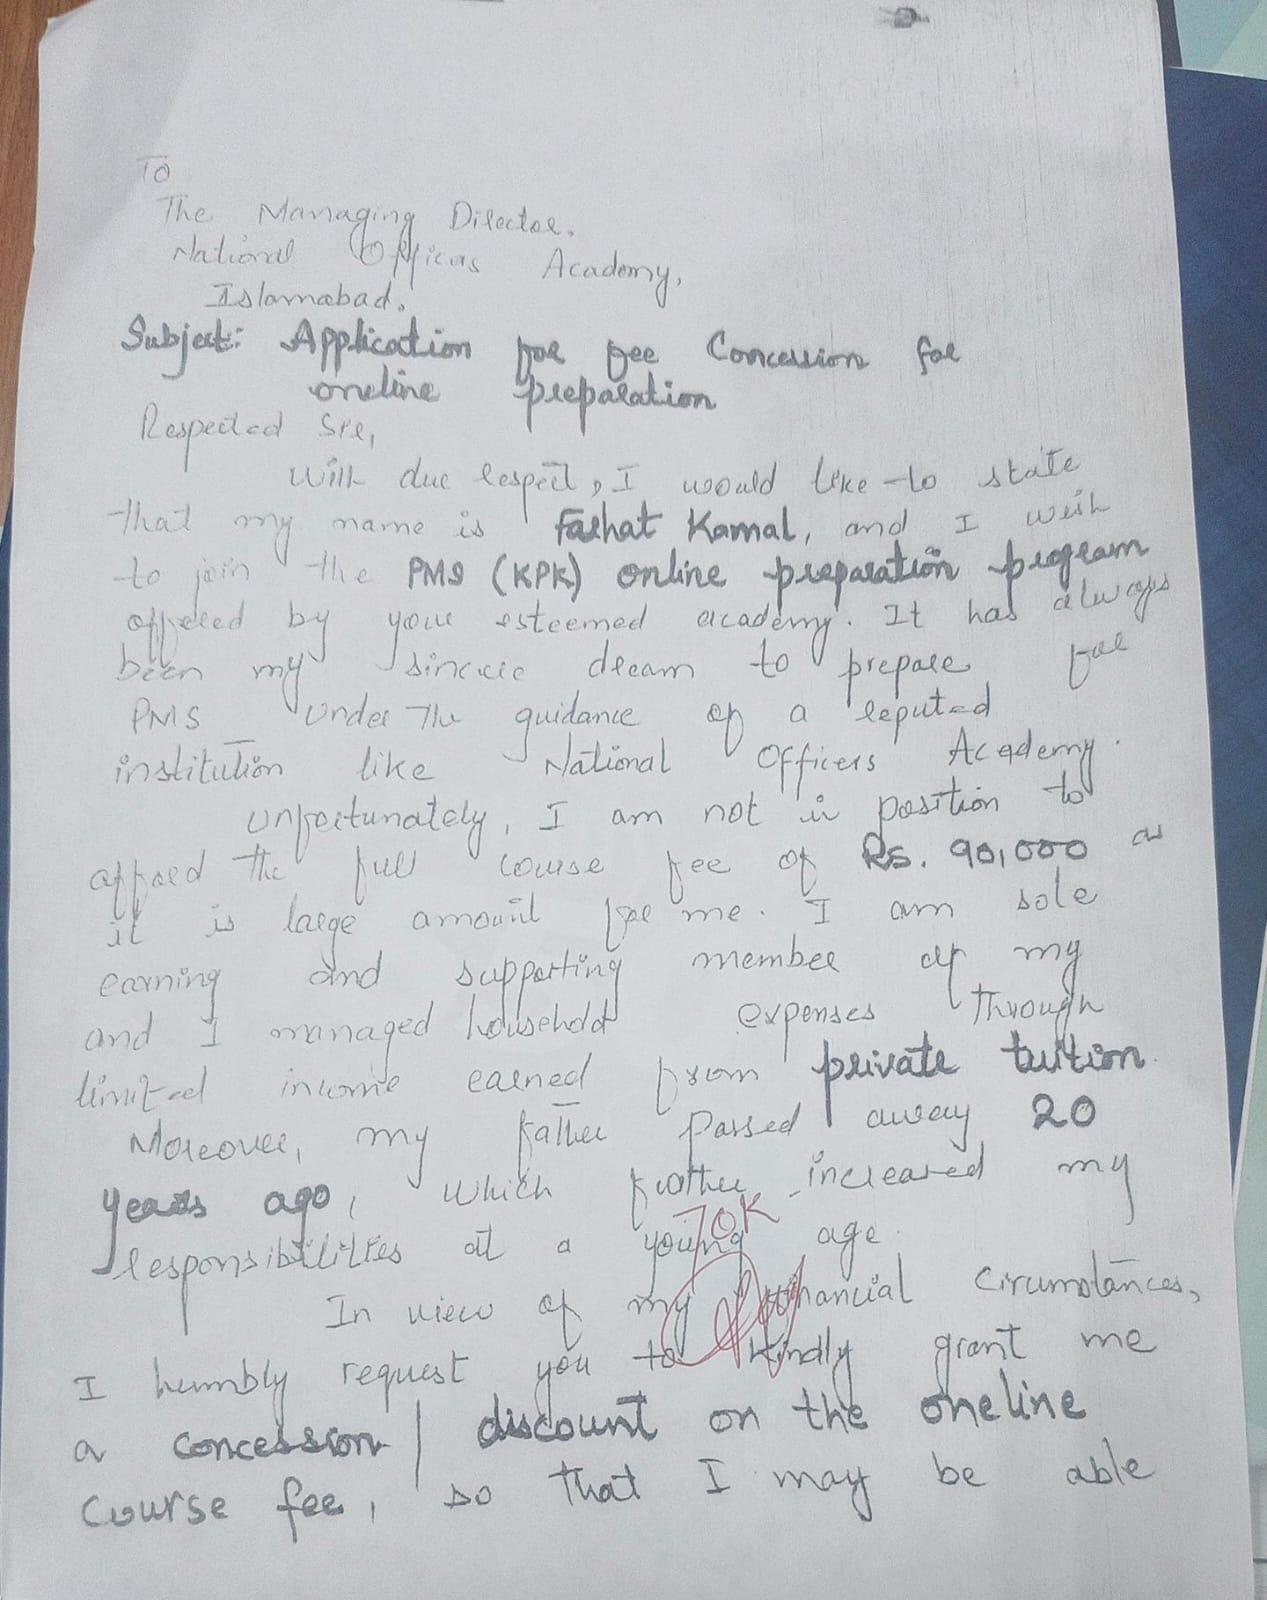 To
The Managing Director.
National Officers Academy,
Islamabad.
Subject: Application for fee Concession for
oneline preparation
Respected Sir,
With due respect, I would like to state
that my name is Farhat Kamal, and I wish
to join the PMS (KPK) online preparation program
offered by your esteemed academy. It has always
been my sincere dream to prepare for
PMS under the guidance of a reputed
institution like National Officers Academy.
Unfortunately, I am not in position to
afford the full course fee of Rs. 90,000 as
it is large amount for me. I am sole
earning and supporting member of my
and I managed household expenses through
limited income earned from private tuition.
Moreover, my father passed away 20
years ago, which further increased my
70K
responsibilities at a young age.
In view of my financial circumstances,
I humbly request you to kindly grant me
a concession / discount on the oneline
Course fee, so that I may be able